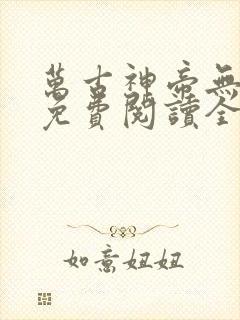 萬古神帝無
免費閱讀全
如意妞妞